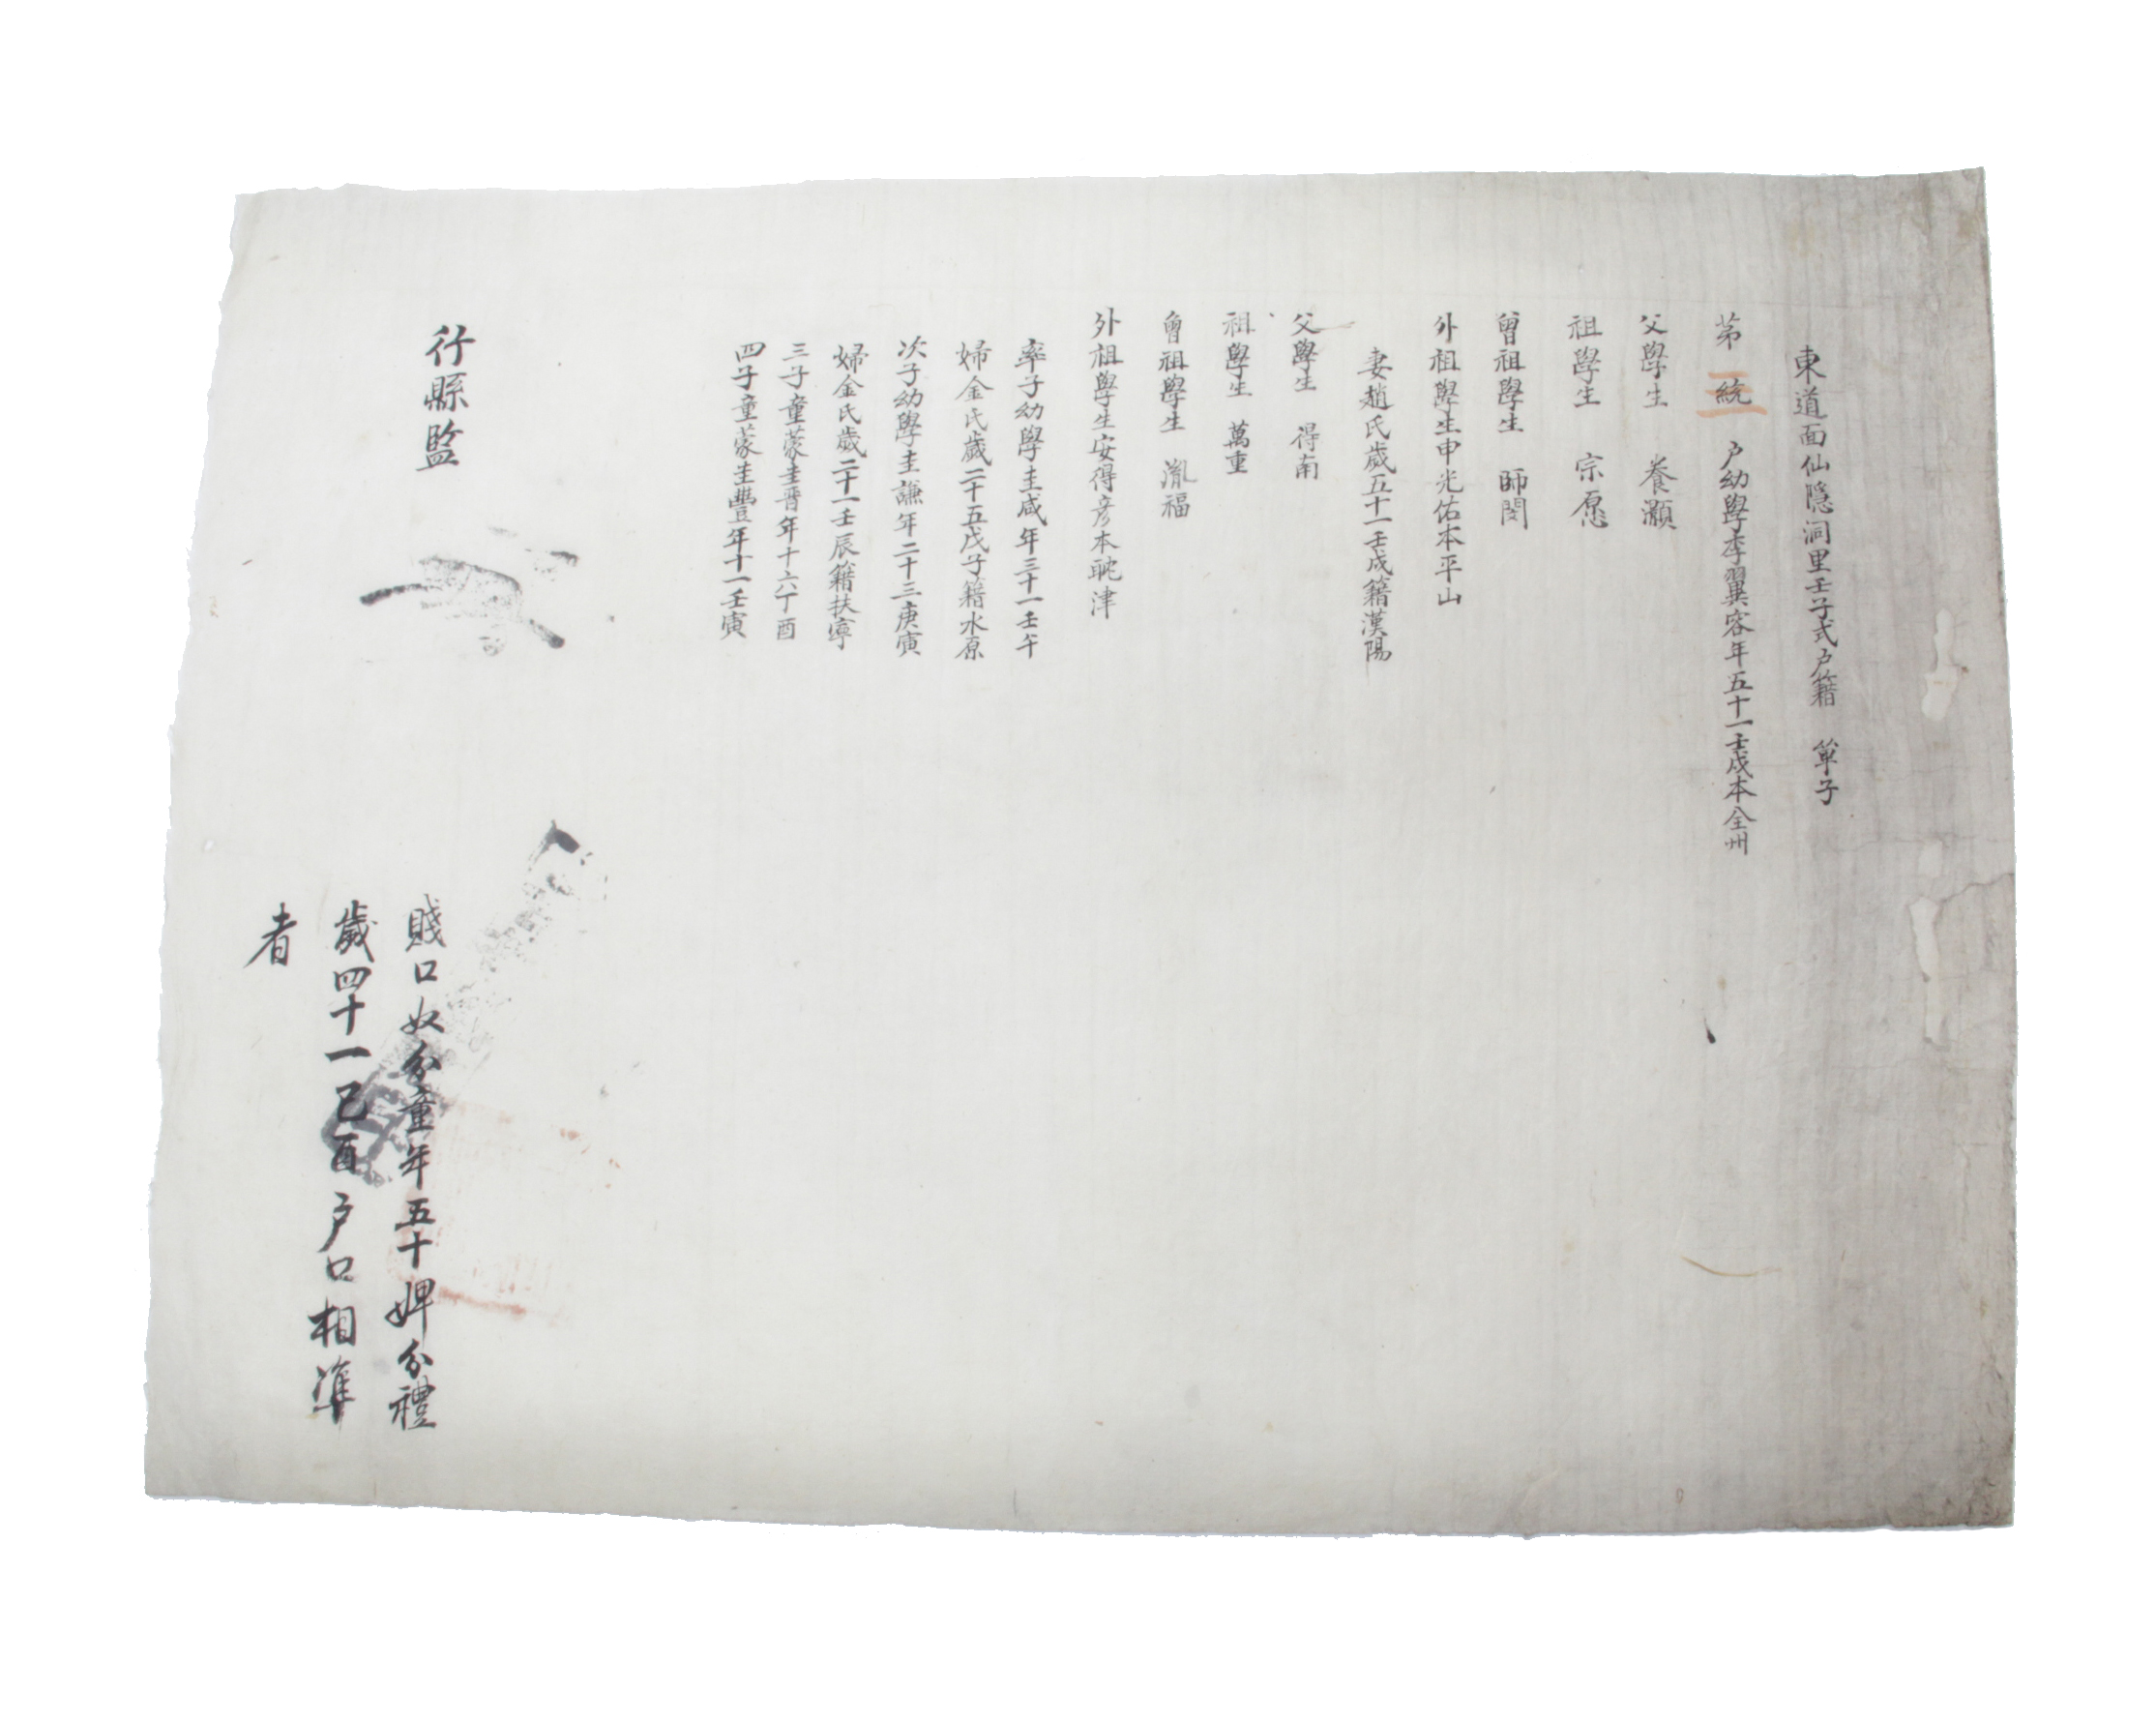 東道面仙隱洞里壬子式戶籍 單子
第三統 戶幼學李翼容年五十一壬戌本全州
父學生 養灝
祖學生 宗愿
曾祖學生 師閔
外祖學生申光佑本平山
妻趙氏歲五十一壬戌籍漢陽
父學生 得南
祖學生 萬重
曾祖學生 胤福
外祖學生安得彦本耽津
率子幼學圭咸年三十一壬午
婦金氏歲二十五戊子籍水原
次子幼學圭謙年二十三庚寅
婦金氏歲二十一壬辰籍扶寧
三子童蒙圭晋年十六丁酉
四子童蒙圭豐年十一壬寅
行縣監
賤口奴分童年五十婢分禮
歲四十一己酉戶口相準
者